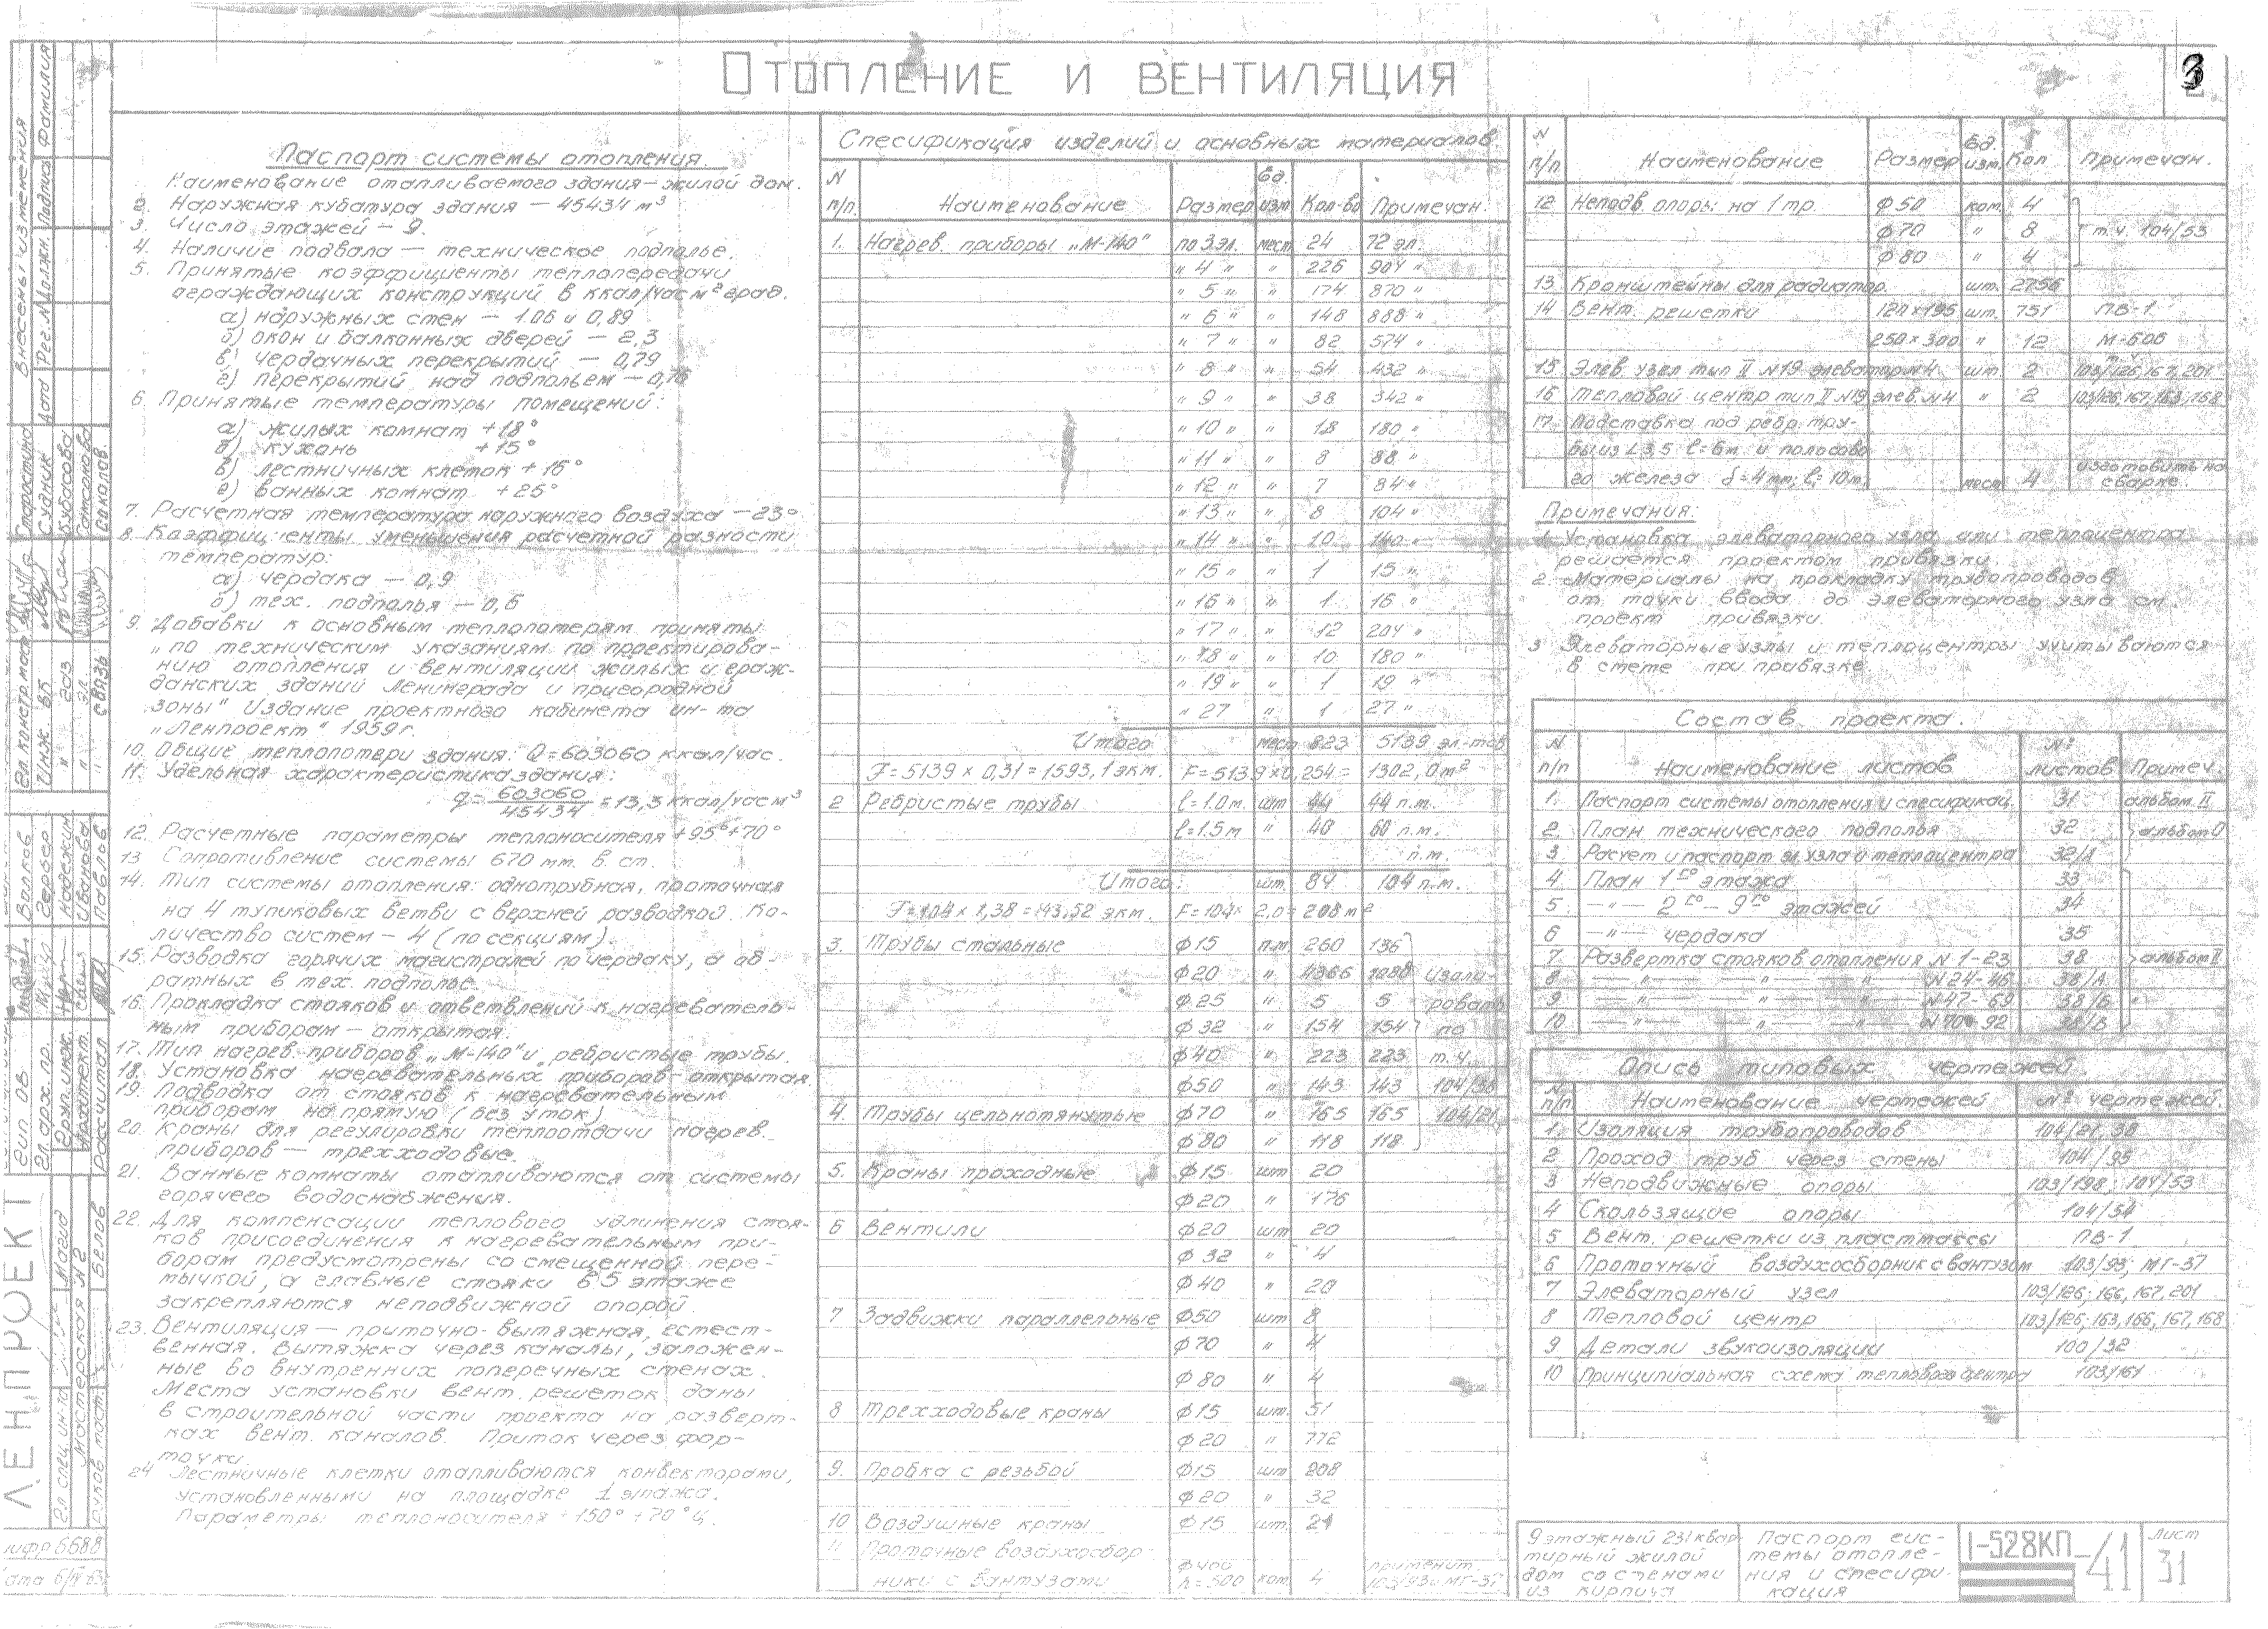 Отопление и вентиляция
3
Паспорт системы отопления.
Наименование отапливаемого здания — жилой дом.
2. Наружная кубатура здания — 45434 м³
3. Число этажей — 9.
4. Наличие подвала — техническое подполье.
5. Принятые коэффициенты теплопередачи
ограждающих конструкций в ккал/час м² град.
а) наружных стен — 1.06 и 0,89
б) окон и балконных дверей — 2,3
в) чердачных перекрытий — 0,79
г) перекрытий над подпольем —
6. Принятые температуры помещений:
а) жилых комнат +18°
б) кухонь +15°
в) лестничных клеток +16°
е) ванных комнат +25°
7. Расчетная температура наружного воздуха —23°
8. Коэффициенты уменьшения расчетной разности
температур:
а) чердака — 0,9
б) тех. подполья — 0,6
9. Добавки к основным теплопотерям приняты
„по техническим указаниям по проектирова-
нию отопления и вентиляции жилых и граж-
данских зданий Ленинграда и пригородной
зоны" Издание проектного кабинета ин-та
„Ленпроект" 1959г.
10. Общие теплопотери здания: Q=603060 ккал/час.
11. Удельная характеристика здания:
q= 603060/45434 = 13,3 ккал/час м³
12. Расчетные параметры теплоносителя +95°+70°
13. Сопротивление системы 670 мм. в. ст.
14. Тип системы отопления: однотрубная, проточная
на 4 тупиковых ветви с верхней разводкой. Ко-
личество систем — 4 (по секциям).
15. Разводка горячих магистралей по чердаку, а об-
ратных в тех. подполье.
16. Прокладка стояков и ответвлений к нагреватель-
ным приборам — открытая.
17. Тип нагрев. приборов „М-140" и ребристые трубы.
18. Установка нагревательных приборов открытая.
19. Подводка от стояков к нагревательным
приборам напрямую (без уток)
20. Краны для регулировки теплоотдачи нагрев.
приборов — трехходовые.
21. Ванные комнаты отапливаются от системы
горячего водоснабжения.
22. Для компенсации теплового удлинения стоя-
ков присоединения к нагревательным при-
борам предусмотрены со смещенной пере-
мычкой, а главные стояки в 5 этаже
закрепляются неподвижной опорой.
23. Вентиляция — приточно-вытяжная, естест-
венная. Вытяжка через каналы, заложен-
ные во внутренних поперечных стенах.
Места установки вент. решеток даны
в строительной части проекта на разверт-
ках вент. каналов. Приток через фор-
точки.
24. Лестничные клетки отапливаются конвекторами,
установленными на площадке 1 этажа.
Параметры теплоносителя +150° +70° ц.
Спесификация изделий и основных материалов
N п/п. Наименование Размер Ед. изм. Кол-во Примечан.
1. Нагрев. приборы „М-140" по 3 эл. мест 24 72 эл.
„ 4 „ „ 226 904 „
„ 5 „ „ 174 870 „
„ 6 „ „ 148 888 „
„ 7 „ „ 82 574 „
„ 8 „ „ 54 432 „
„ 9 „ „ 38 342 „
„ 10 „ „ 18 180 „
„ 11 „ „ 8 88 „
„ 12 „ „ 7 84 „
„ 13 „ „ 8 104 „
„ 14 „ „ 10 140 „
„ 15 „ „ 1 15 „
„ 16 „ „ 1 16 „
„ 17 „ „ 12 204 „
„ 18 „ „ 10 180 „
„ 19 „ „ 1 19 „
„ 27 „ 1 27 „
Итого мест 823 5139 эл-тов
F=5139 × 0,31=1593,1 экм. F=5139×0,254= 1302,0 м²
2 Ребристые трубы ℓ=1.0м. шт 44 44 п.м.
ℓ=1.5м „ 40 60 п.м.
п.м.
Итого: шт. 84 104 п.м.
F=104 × 1,38=143,52 экм. F=104× 2,0= 208 м²
3. Трубы стальные ф15 п.м. 260 136
ф20 „ 4366 изоли-
ф25 „ 5 5 ровать
ф32 „ 154 154 по
ф40 „ 223 223 т.ч.
ф50 „ 143 143 104/38
4. Трубы цельнотянутые ф70 „ 165 165 104/21
ф80 „ 118 118
5. Краны проходные ф15 шт 20
ф20 „ 176
6 Вентили ф20 шт 20
ф32 „ 4
ф40 „ 20
7 Задвижки параллельные ф50 шт 8
ф70 „ 4
ф80 „ 4
8 Трехходовые краны ф15 шт. 51
ф20 „ 772
9. Пробка с резьбой ф15 шт 208
ф20 „ 32
10 Воздушные краны ф15 шт. 21
11 Проточные воздухосбор-
ники с вантузами ф400 h=500 ком. 4 применит. 103/93 и МГ-37
N п/п Наименование Размер Ед. изм. Кол Примечан.
12 Неподв. опоры на 1 тр. ф50 ком. 4
ф70 „ 8 т.ч. 104/53
ф80 „ 4
13 Кронштейны для радиатор. шт. 2756
14 Вент. решетки 120×195 шт. 751 ПВ-1
250×300 „ 12 М-606
15 Элев. узел тип II N19 элеватор N4 шт. 2 103/126, 167, 201
16 Тепловой центр тип II N19 элев. N4 „ 2 103/126, 167, 163, 168
17 Подставка под ребр. тру-
бы из L35 ℓ=6м и полосово
го железа δ=4мм; ℓ=10м. мест 4 изготовить на сварке.
Примечания:
1. Установка элеваторного узла или теплоцентра
решается проектом привязки.
2. Материалы на прокладку трубопроводов
от точки ввода до элеваторного узла см.
проект привязки.
3 Элеваторные узлы и теплоцентры учитываются
в смете при привязке.
Состав проекта.
N п/п Наименование листов №: листов Примеч.
1. Паспорт системы отопления и спесификац. 31 альбом II
2. План технического подполья 32 альбом 0
3 Расчет и паспорт эл. узла и теплоцентра 32/А
4 План 1го этажа 33
5. —„— 2го — 9го этажей 34
6 —„— чердака 35
7 Развертка стояков отопления N 1-23 38 альбом II
8 —„— —„— —„— N 24-46 38/А
9 —„— —„— —„— N 47-69 38/Б „
10 —„— —„— —„— N 70-92 38/В
Опись типовых чертежей.
N п/п Наименование чертежей №: чертежей
1. Изоляция трубопроводов 104/21, 38
2 Проход труб через стены 104/95
3 Неподвижные опоры 103/198; 104/53
4 Скользящие опоры 104/54
5 Вент. решетки из пластмассы ПВ-1
6 Проточный воздухосборник с вантузом 103/93; МГ-37
7 Элеваторный узел 103/126; 166, 167, 201
8 Тепловой центр 103/126, 163, 166, 167, 168
9 Детали звукоизоляции 100/32
10 Принципиальная схема теплового центра 103/161
9 этажный 231 квар
тирный жилой
дом со стенами
из кирпича
Паспорт сис-
темы отопле-
ния и спесифи-
кация
1-528КП-41
Лист
31
Внесены изменения
Дата Рег. № Должн. Подпись Фамилия
Гл. констр. маст.
Инж. ВК Судник
„ газ Бубусова
„ эл. Самсонова
„ связь Соколов
ГИП ОВ Волков
Гл. арх. пр. Гербер
Груп. инж. Надежин
Архитект. Иванова
Рассчитал Павлов
ЛЕНПРОЕКТ
Гл. спец. ин-та Магид
Мастерская N 2
Руков. маст. Белов
Шифр 6688
Дата 6/IV-63